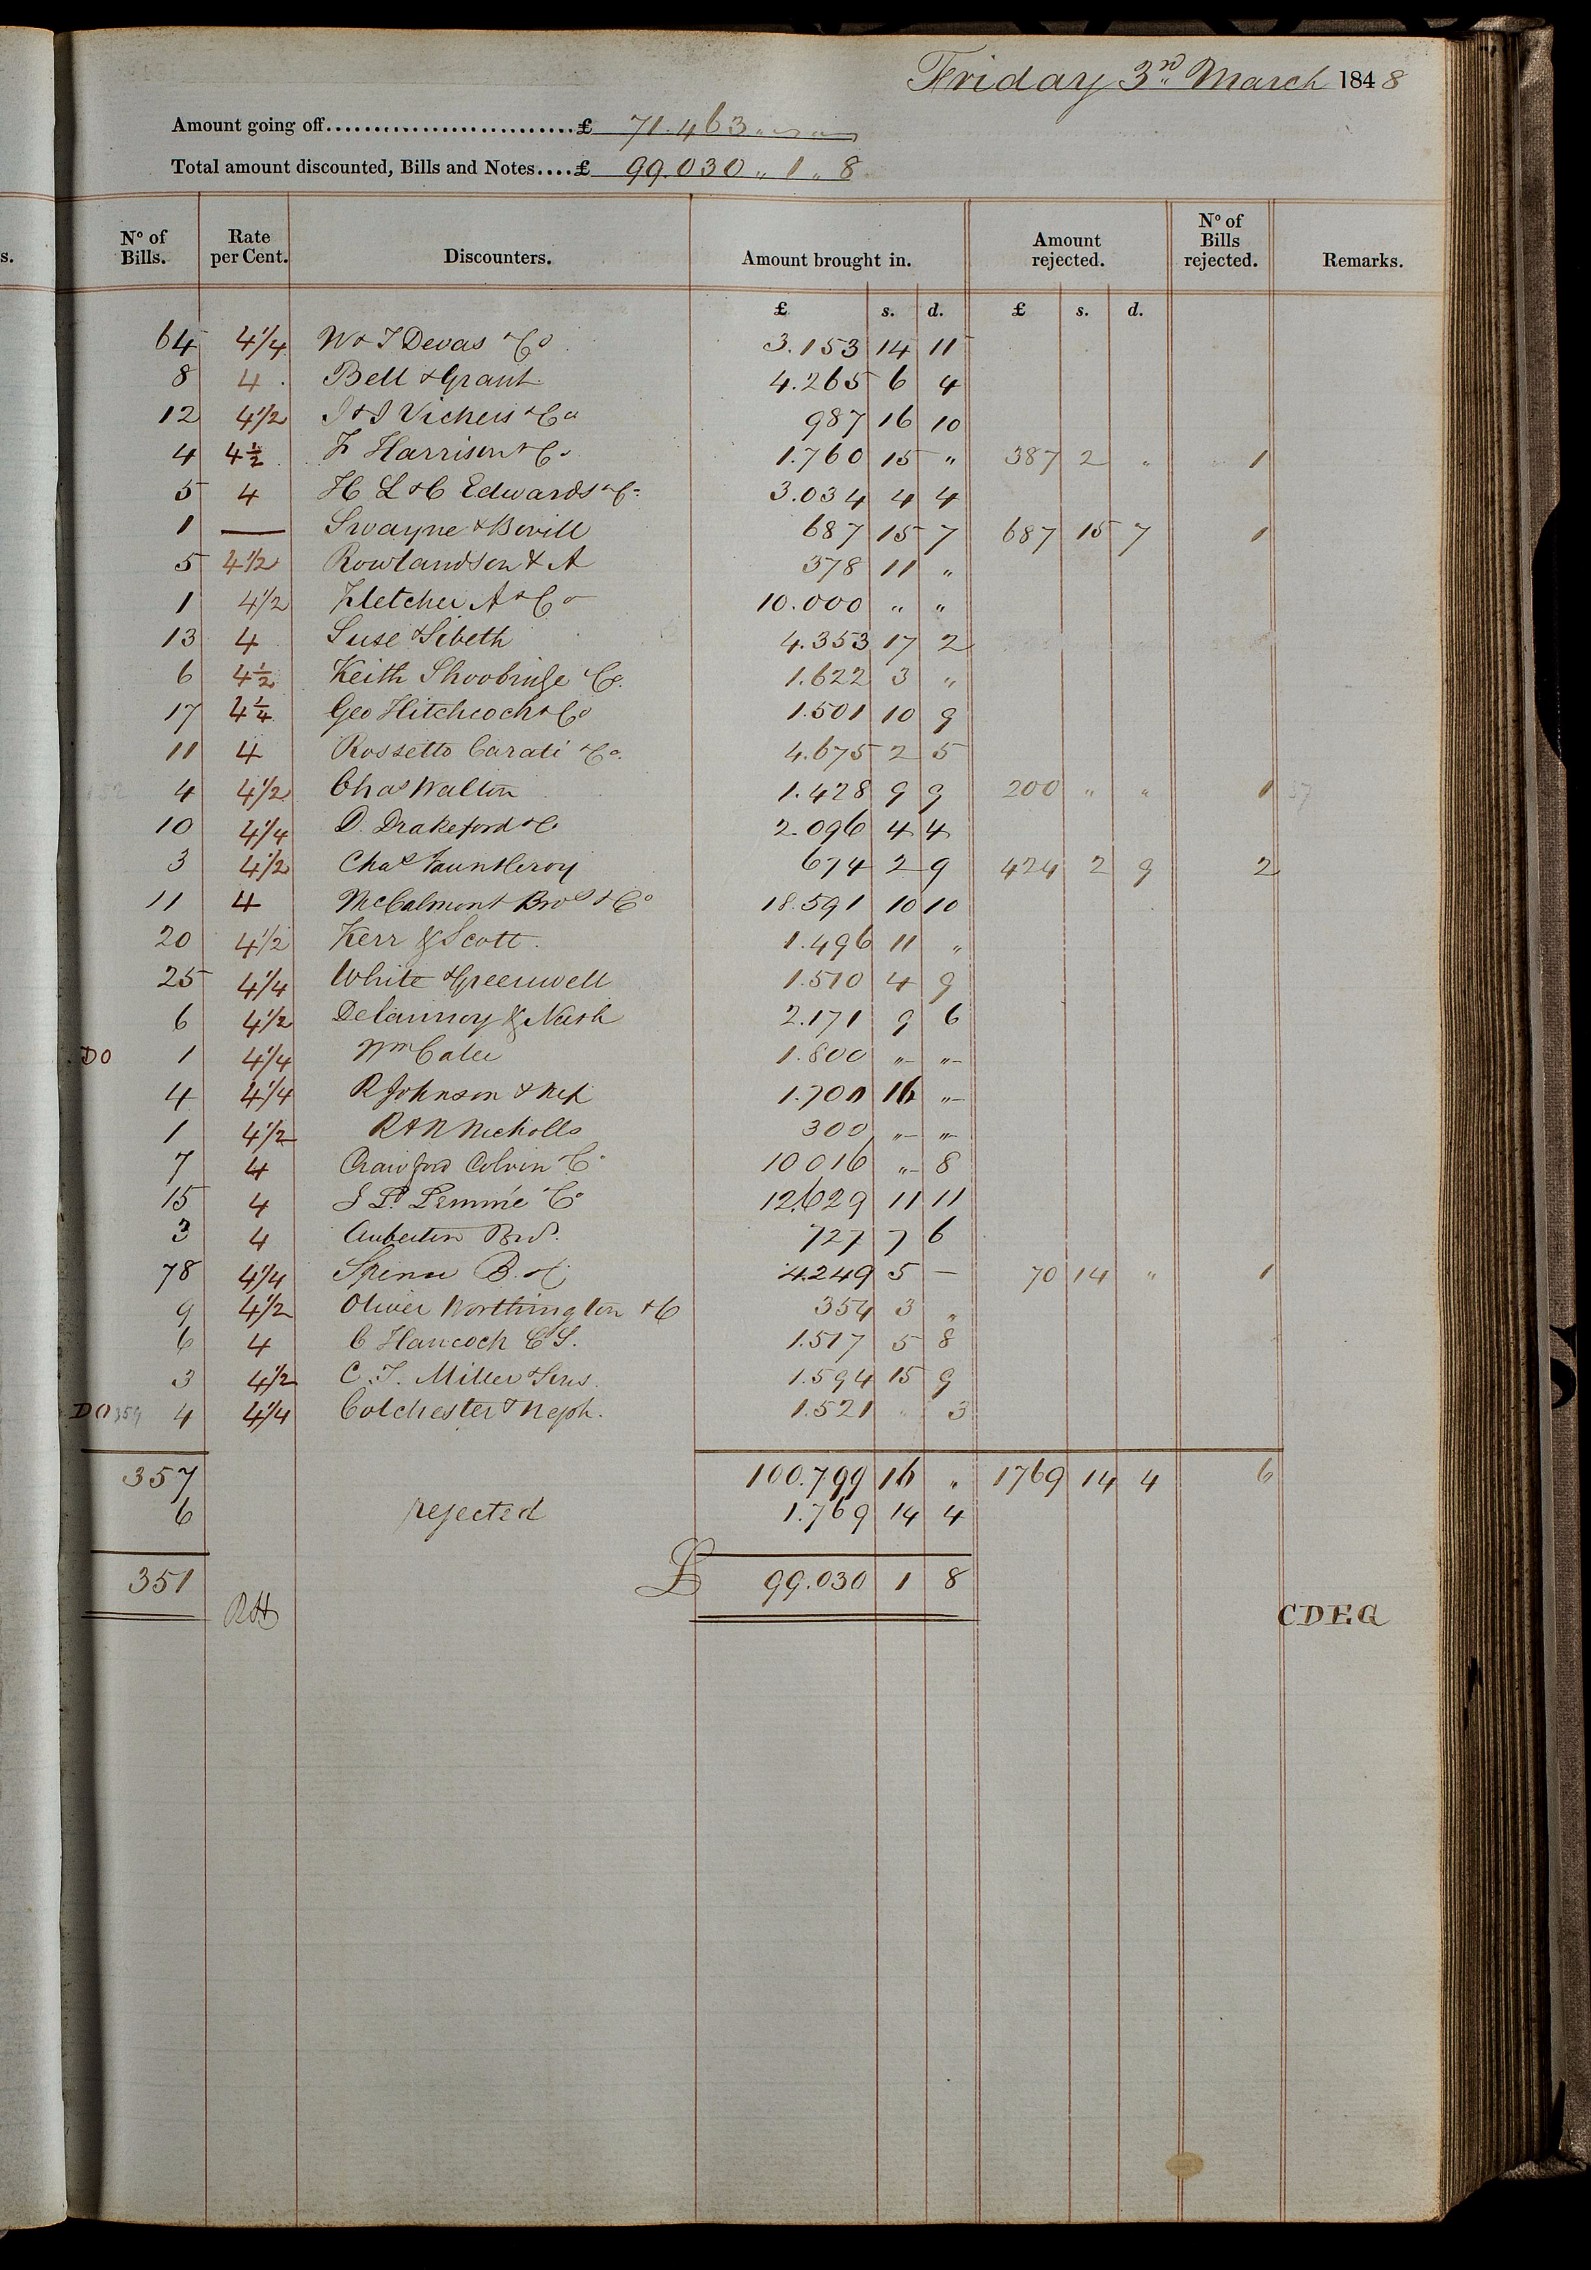 Friday 3rd March 1848
Amount going off..........................£ 71.463 " " "
Total amount discounted, Bills and Notes....£ 99.030 " 1 " 8
s. No of Bills. Rate per Cent. Discounters. Amount brought in. Amount rejected. No of Bills rejected. Remarks.
£ s. d. £ s. d.
64 4 1/4 W & T Devas & Co 3.153 14 11
8 4 Bell & Grant 4.265 6 4
12 4 1/2 J & J Vickers & Co 987 16 10
4 4 1/2 F Harrison & Co 1.760 15 " 387 2 " 1
5 4 H L & C Edwards & Co 3.034 4 4
1 — Swayne & Bovill 687 15 7 687 15 7 1
5 4 1/2 Rowlandson & A 378 11 "
1 4 1/2 Fletcher A & Co 10.000 " "
13 4 Suse & Sibeth 4.353 17 2
6 4 1/2 Keith Shoobridge Co. 1.622 3 "
17 4 1/4 Geo Hitchcock & Co 1.501 10 9
11 4 Rossetto Carati & Co. 4.675 2 5
4 4 1/2 Chas Walton 1.428 9 9 200 " " 1
10 4 1/4 D. Drakeford & Co 2.096 4 4
3 4 1/2 Chas Fauntleroy 674 2 9 424 2 9 2
11 4 McCalmont Bros & Co 18.591 10 10
20 4 1/2 Kerr & Scott 1.496 11 "
25 4 1/4 White & Greenwell 1.510 4 9
6 4 1/2 Delannoy & Nash 2.171 9 6
DO 1 4 1/4 Wm 1.800 " "
4 4 1/4 R Johnson & Nep 1.700 16 "
1 4 1/2 R & N Nicholls 300 " "
7 4 Crawford Colvin Co 10016 " 8
15 4 Co 12.629 11 11
3 4 Aubertin Bros. 727 7 6
78 4 1/4 B. & C 4249 5 — 70 14 " 1
9 4 1/2 Oliver Worthington & C 354 3 "
6 4 C Hancock 1.517 5 8
3 4 1/2 C. T. Miller & Sons. 1.594 15 9
DO 359 4 4 1/4 Colchester & Neph. 1.521 " 3
357 100.799 16 " 1769 14 4 6
6 rejected 1.769 14 4
351 £ 99.030 1 8
RH CDEG